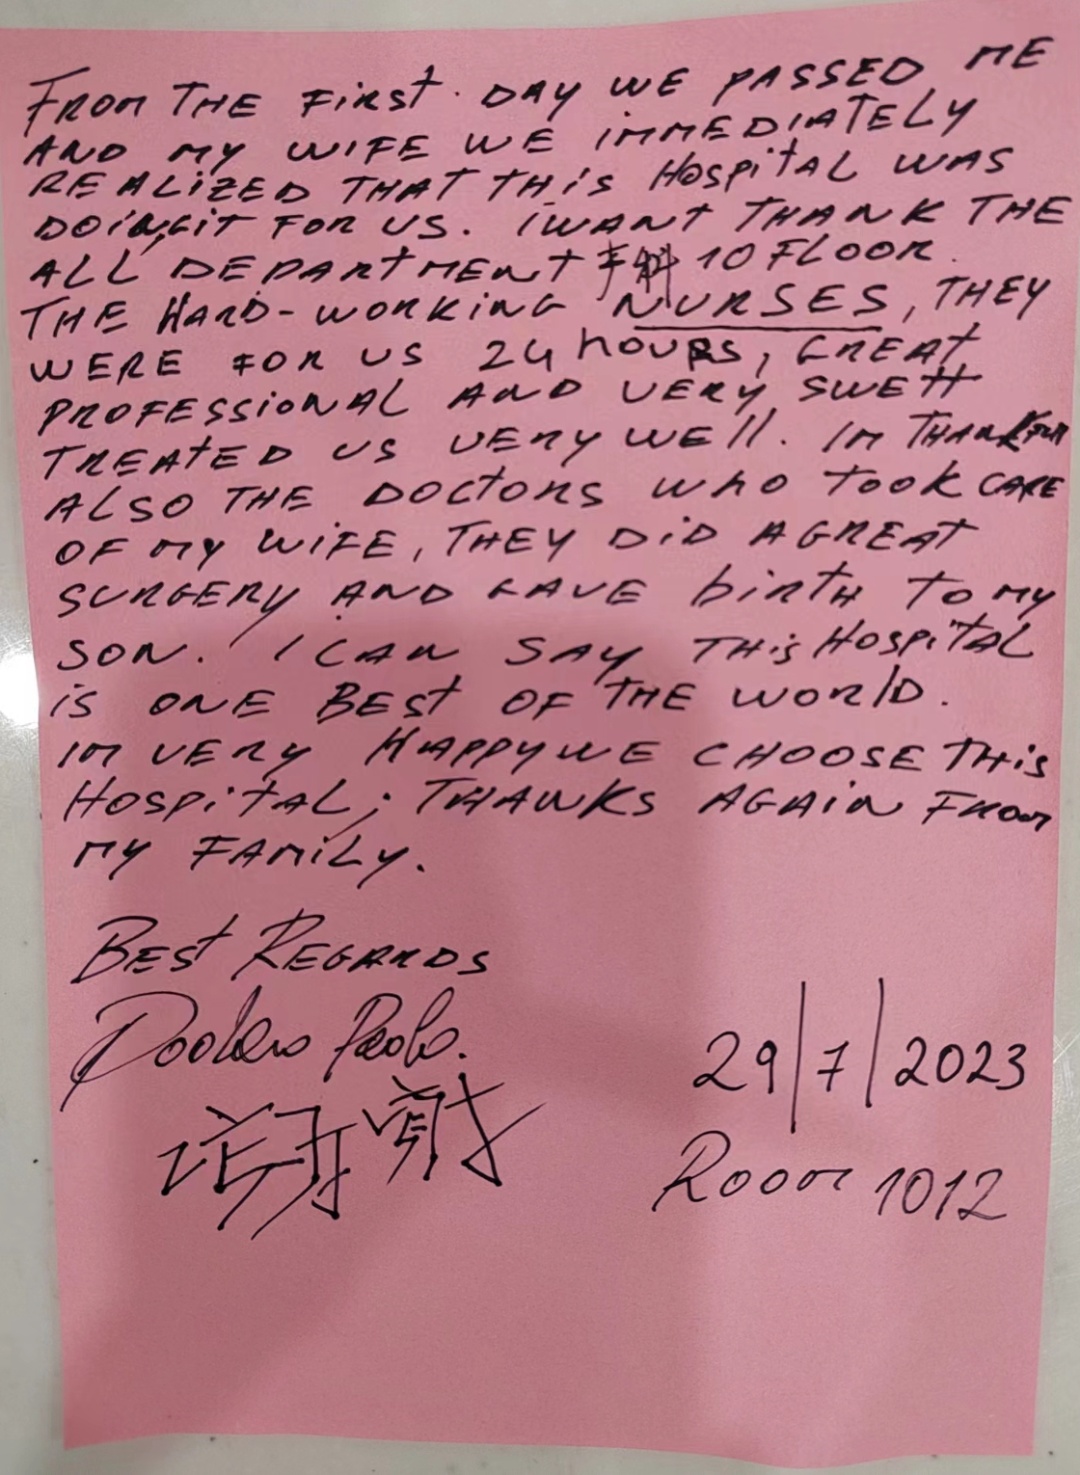 FROM THE FIRST DAY WE PASSED ME
AND MY WIFE WE IMMEDIATELY
REALIZED THAT THIS HOSPITAL WAS
FOR US. I WANT THANK THE
ALL DEPARTMENT 10 FLOOR.
THE HARD-WORKING NURSES, THEY
WERE FOR US 24 hours, GREAT
PROFESSIONAL AND VERY SWETT
TREATED US VERY WELL. IM THANKFUL
ALSO THE DOCTORS WHO TOOK CARE
OF MY WIFE, THEY DID A GREAT
SURGERY AND GAVE birth TO MY
SON. I CAN SAY THIS HOSPITAL
IS ONE BEST OF THE WORLD.
IM VERY HAPPY WE CHOOSE THIS
HOSPITAL; THANKS AGAIN FROM
MY FAMILY.
BEST REGARDS
Paolo.
29/7/2023
Room 1012